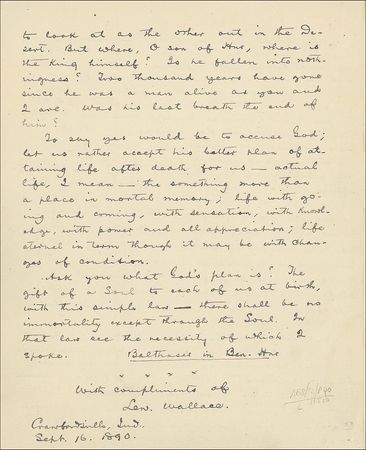 to look at as the other out in the De-
sert. But where, O son of Hur, where is
the King himself? Is he fallen into noth-
ingness? Two thousand years have gone
since he was a man alive as you and
I are. Was his last breath the end of
him?
To say yes would be to accuse God;
let us rather accept his better plan of at-
taining life after death for us — actual
life, I mean — the something more than
a place in mortal memory; life with go-
ing and coming, with sensation, with knowl-
edge, with power and all appreciation; life
eternal in term though it may be with chan-
ges of condition.
Ask you what God's plan is? The
gift of a Soul to each of us at birth,
with this simple law — there shall be no
immortality except through the Soul. In
that law see the necessity of which I
spoke. Balthasar in Ben. Hur
" " " "
With compliments of
Lew. Wallace.
Crawfordsville, Ind.
Sept. 16. 1890.